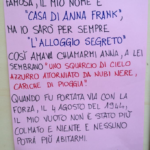 FAMOSA, IL MIO NOME È
"CASA DI ANNA FRANK",
MA IO SARÒ PER SEMPRE
"L'ALLOGGIO SEGRETO"
COSÌ AMAVA CHIAMARMI ANNA, A LEI
SEMBRAVO "UNO SQUARCIO DI CIELO
AZZURRO ATTORNIATO DA NUBI NERE,
CARICHE DI PIOGGIA"
QUANDO FU PORTATA VIA CON LA
FORZA, IL 4 AGOSTO DEL 1944,
IL MIO VUOTO NON È STATO PIÙ
COLMATO E NIENTE E NESSUNO
POTRÀ PIÙ ABITARMI.